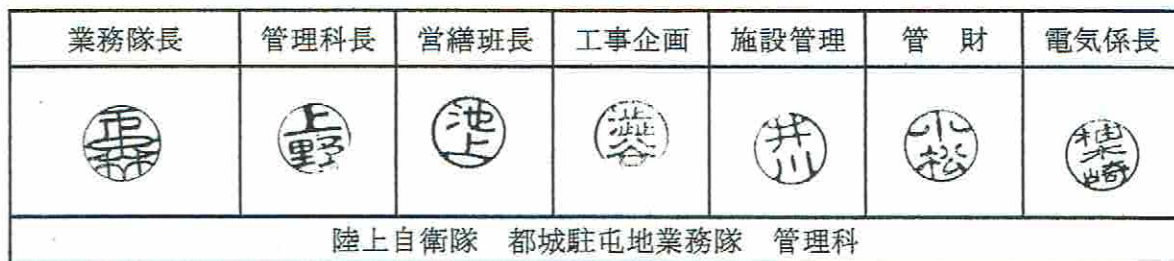 業務隊長 管理科長 営繕班長 工事企画 施設管理 管 財 電気係長
上野 池上 澁谷 井川 小松
陸上自衛隊 都城駐屯地業務隊 管理科